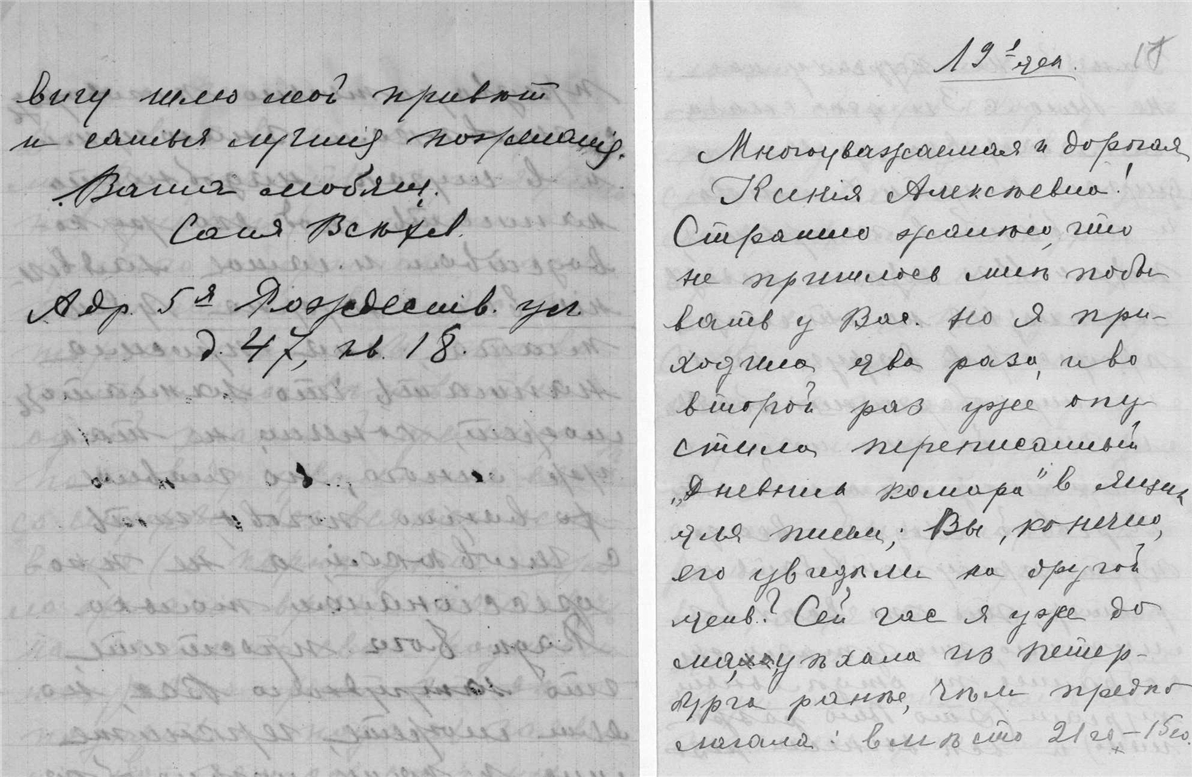 вичу шлю мой привѣт
и самыя лучшія пожеланія.
Ваша любящ.
Соня Всехсв.
Адр. 5я Рождеств. ул
д. 47, кв. 18.
19 1 дек.
Многоуважаемая и дорогая
Ксенія Алексѣевна!
Страшно жалѣю, что
не пришлось мнѣ побы
вать у Вас. Но я при-
ходила два раза, и во
второй раз уже опу
стила переписанный
„Дневник комара" в ящик
для писем; Вы, конечно,
его увидѣли на другой
день? Сейчас я уже до
ма, уѣхала из Петер-
бурга ранѣе, чѣм предпо
лагала: вмѣсто 21го – 15го.